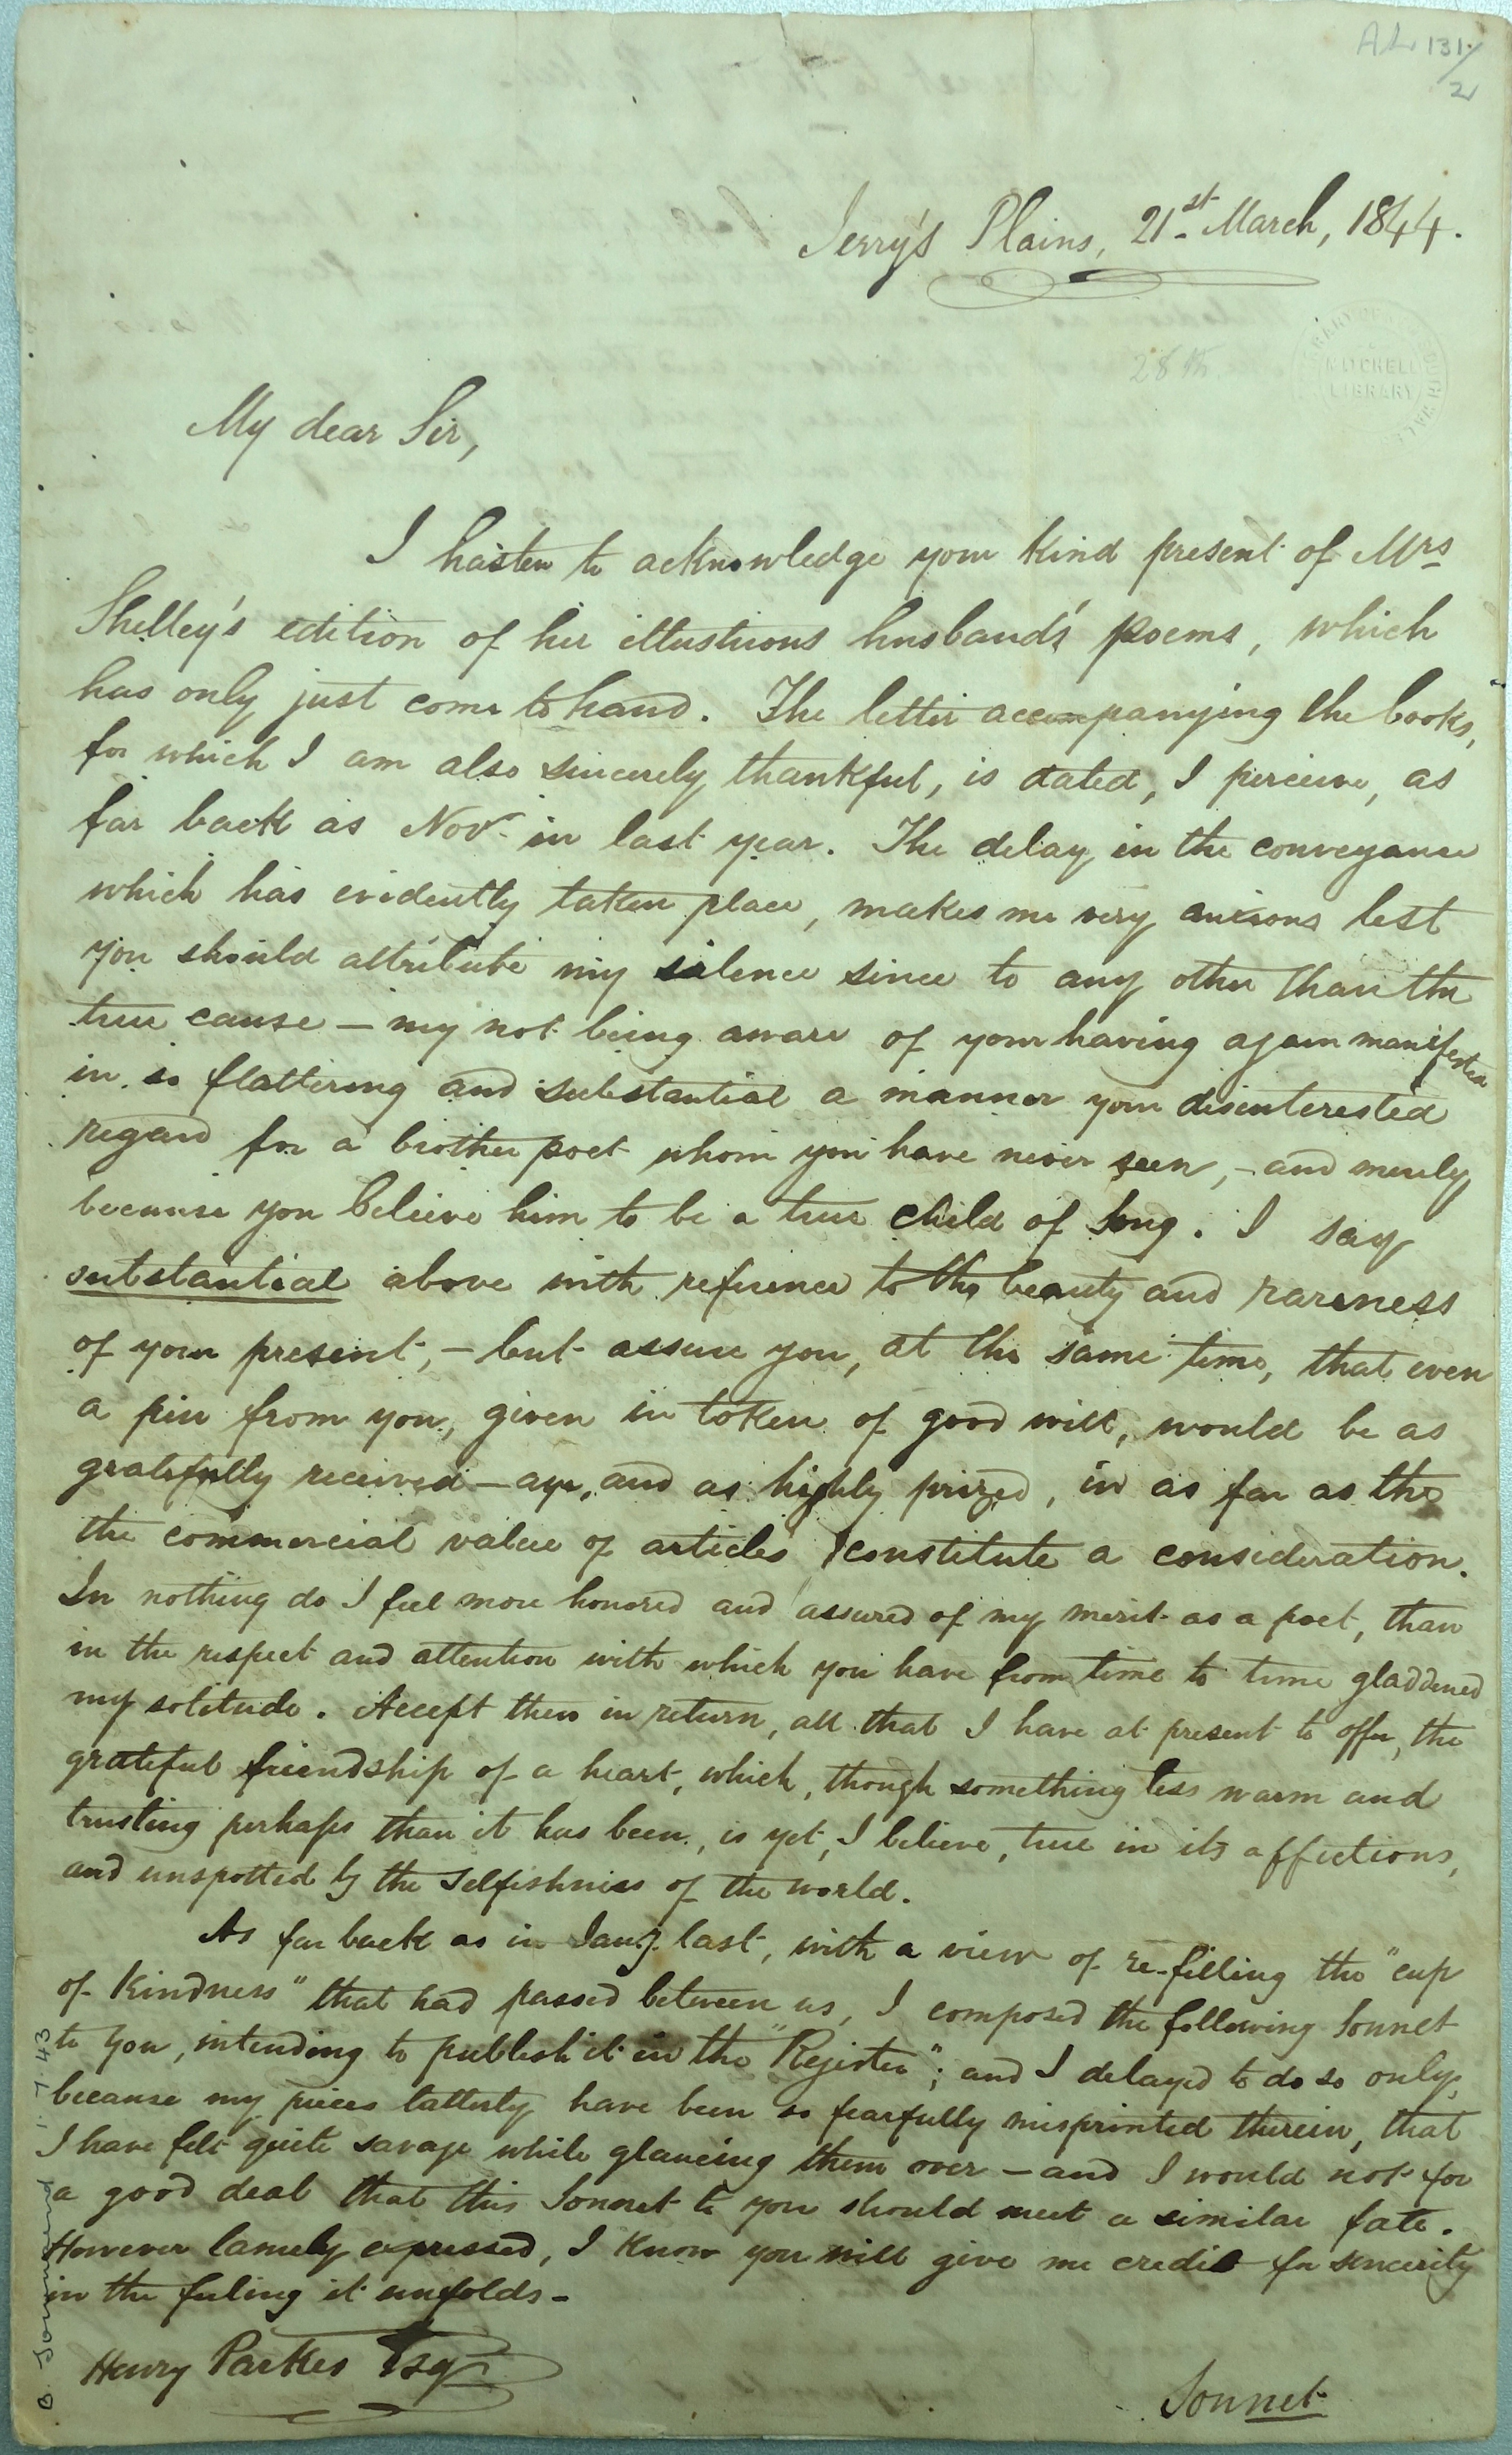 AL 131/
2
Jerry's Plains, 21st March, 1844.
28th.
MITCHELL
LIBRARY
My dear Sir,
I hasten to acknowledge your kind present of Mrs
Shelley's edition of her illustrious husband's poems, which
has only just come to hand. The letter accompanying the books,
for which I am also sincerely thankful, is dated, I perceive, as
far back as Novr in last year. The delay in the conveyance
which has evidently taken place, makes me very anxious lest
you should attribute my silence since to any other than the
true cause — my not being aware of your having again manifested
in so flattering and substantial a manner your disinterested
regard for a brother poet whom you have never seen, — and merely
because you believe him to be a true child of Song. I say
substantial above with reference to the beauty and rareness
of your present, — but assure you, at the same time, that even
a pin from you, given in token of good will, would be as
gratefully received — aye, and as highly prized, in as far as the
the commercial value of articles constitute a consideration.
In nothing do I feel more honored and assured of my merit as a poet, than
in the respect and attention with which you have from time to time gladdened
my solitude. Accept then in return, all that I have at present to offer, the
grateful friendship of a heart, which, though something less warm and
trusting perhaps than it has been, is yet, I believe, true in its affections,
and unspotted by the selfishness of the world.
As far back as in Jany. last, with a view of re-filling the "cup
of kindness" that had passed between us, I composed the following Sonnet
to you, intending to publish it in the "Register"; and I delayed to do so only,
because my pieces latterly have been so fearfully misprinted therein, that
I have felt quite savage while glancing them over — and I would not for
a good deal that this Sonnet to you should meet a similar fate.
However lamely expressed, I know you will give me credit for sincerity
in the feeling it unfolds —
Henry Parkes Esqr
Sonnet
1.7.43